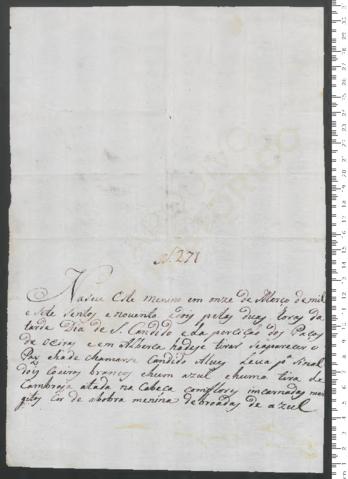 N. 271
Nasceu Este menino em onze de Março de mil
e sete sentos e noventa e dois pelas duas horas da
tarde Dia de S. Candido e da porcisão dos Paços
de oeiras e em Alberca hadese tirar seaparecer o
Paz e hade chamarse Candido Alves Leva p.ª Sinal
dois Coeiros brancos e hum azul e huma tira de
Cambraia atada na Cabeça com flores incarnadas
Cor de abobra menina debroadas de azul